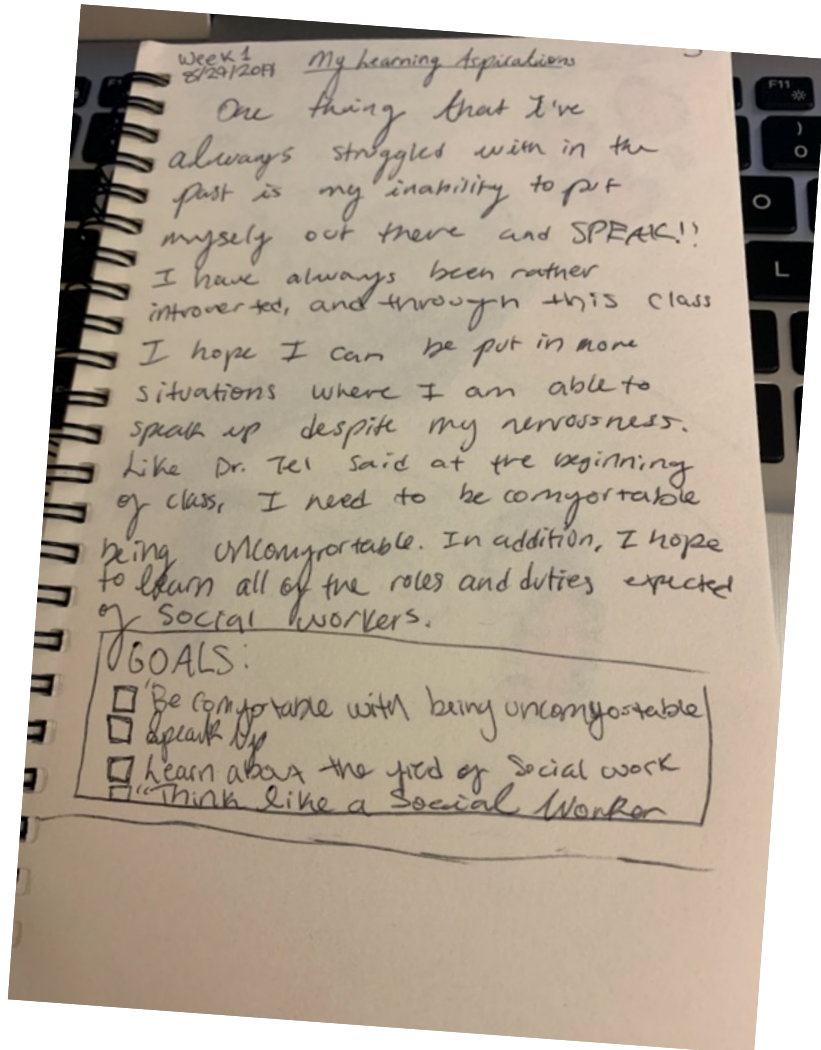 Week 1
8/29/2019
My Learning Aspirations
One thing that I've
always struggled with in the
past is my inability to put
myself out there and SPEAK!!
I have always been rather
introverted, and through this class
I hope I can be put in more
situations where I am able to
speak up despite my nervossness.
Like Dr. Tel said at the beginning
of class, I need to be comfortable
being uncomfortable. In addition, I hope
to learn all of the roles and duties expected
of social workers.
GOALS:
Be comfortable with being uncomfortable
Speak Up
Learn about the field of Social work
"Think like a Social Worker
F11
)
O
O
L